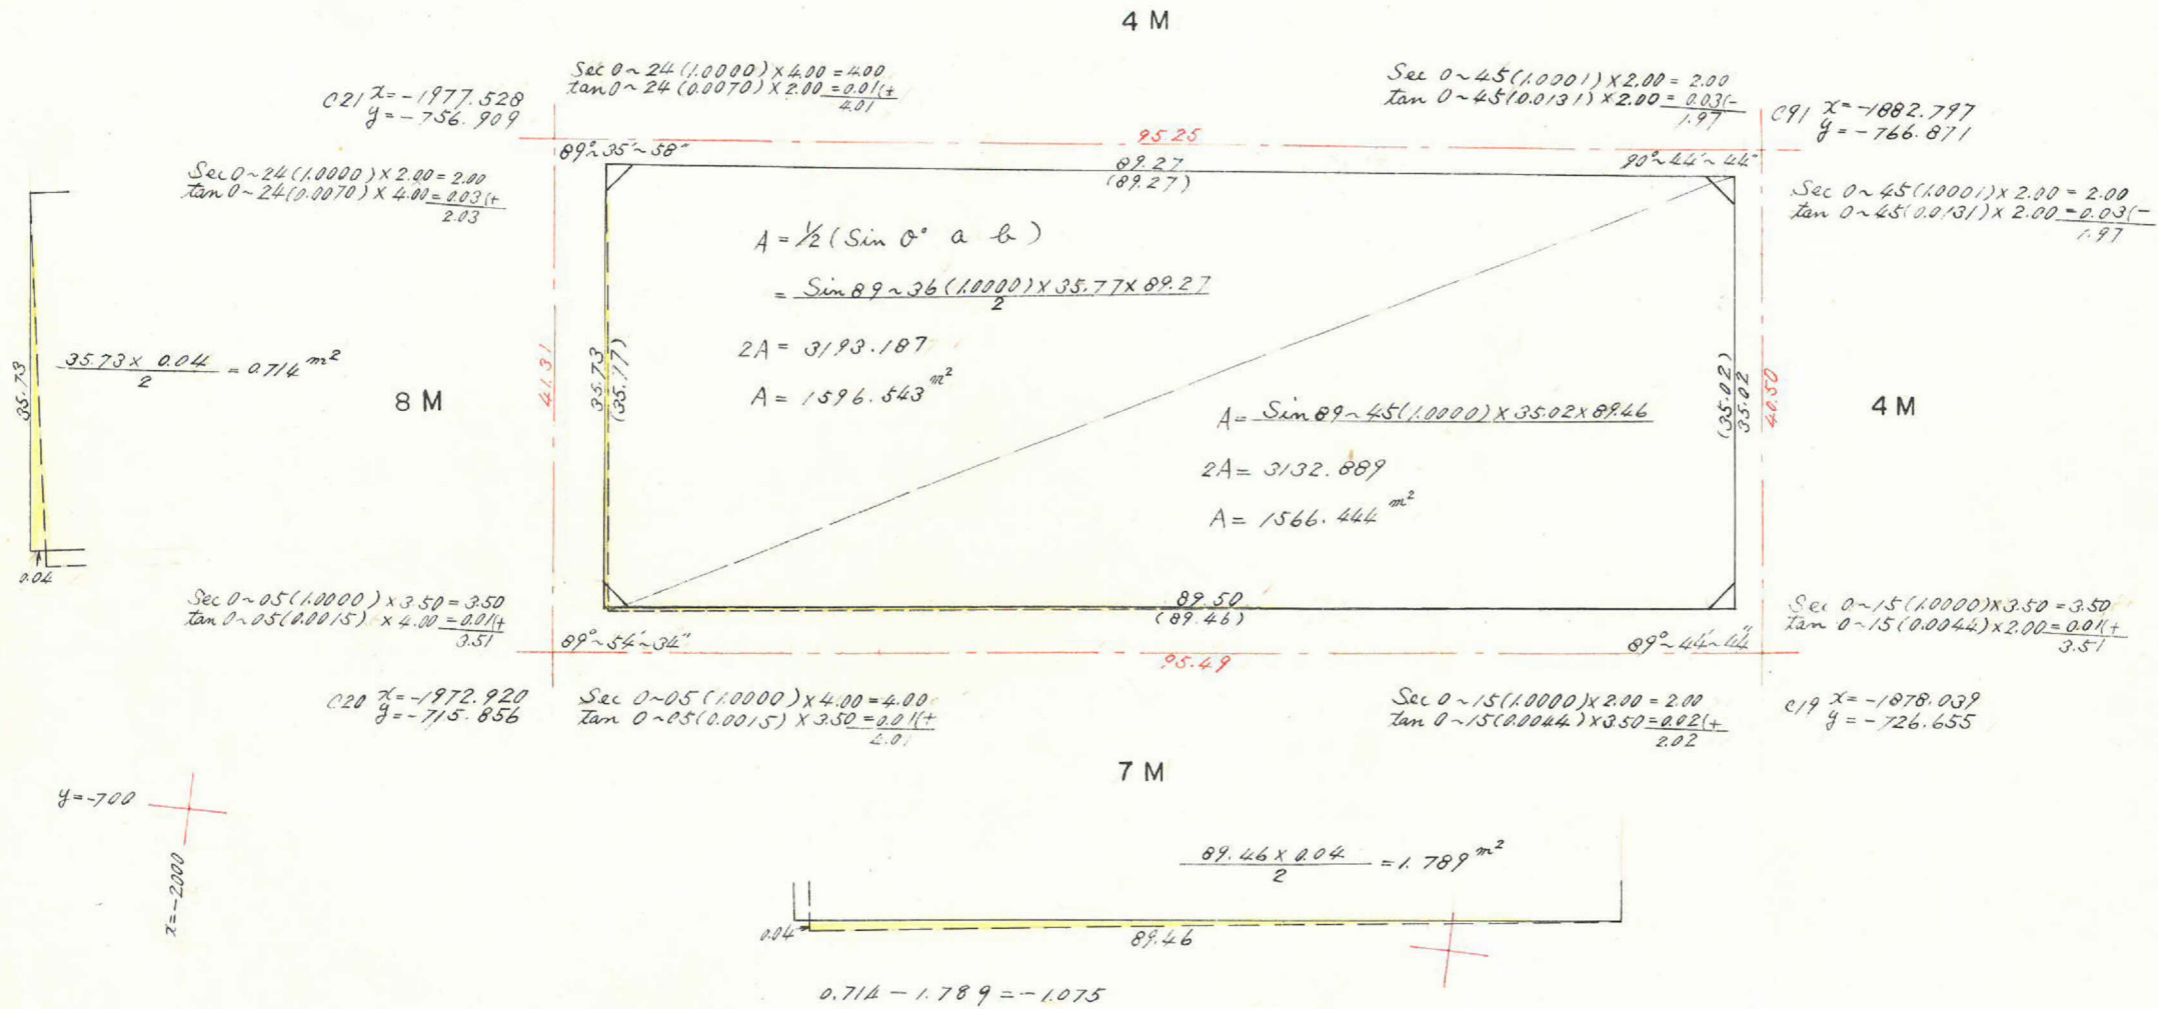 4 M
Sec 0~24 (1.0000) × 4.00 = 4.00
tan 0~24 (0.0070) × 2.00 = 0.01(+
4.01
C21 x=-1977.528
y=-756.909
Sec 0~45 (1.0001) × 2.00 = 2.00
tan 0~45 (0.0131) × 2.00 = 0.03(-
1.97
C91 x=-1882.797
y=-766.871
95.25
89°~35'~58"
89.27
(89.27)
90°~44'~44"
Sec 0~24 (1.0000) × 2.00 = 2.00
tan 0~24 (0.0070) × 4.00 = 0.03(+
2.03
Sec 0~45 (1.0001) × 2.00 = 2.00
tan 0~45 (0.0131) × 2.00 = 0.03(-
1.97
A = 1/2 (Sin θ° a b)
= Sin 89~36 (1.0000) × 35.77 × 89.27
2
2A = 3193.187
A = 1596.543 m²
35.73
35.73 × 0.04 = 0.714 m²
2
0.04
8 M
41.31
35.73
(35.77)
A = Sin 89~45 (1.0000) × 35.02 × 89.46
2A = 3132.889
A = 1566.444 m²
(35.02)
35.02
40.50
4 M
Sec 0~05 (1.0000) × 3.50 = 3.50
tan 0~05 (0.0015) × 4.00 = 0.01(+
3.51
89.50
(89.46)
Sec 0~15 (1.0000) × 3.50 = 3.50
tan 0~15 (0.0044) × 2.00 = 0.01(+
3.51
89°~54'~34"
95.49
89°~44'~44"
C20 x=-1972.920
y=-715.856
Sec 0~05 (1.0000) × 4.00 = 4.00
tan 0~05 (0.0015) × 3.50 = 0.01(+
4.01
Sec 0~15 (1.0000) × 2.00 = 2.00
tan 0~15 (0.0044) × 3.50 = 0.02(+
2.02
C19 x=-1878.039
y=-726.655
7 M
y=-700
x=-2000
89.46 × 0.04 = 1.789 m²
2
0.04
89.46
0.714 - 1.789 = -1.075